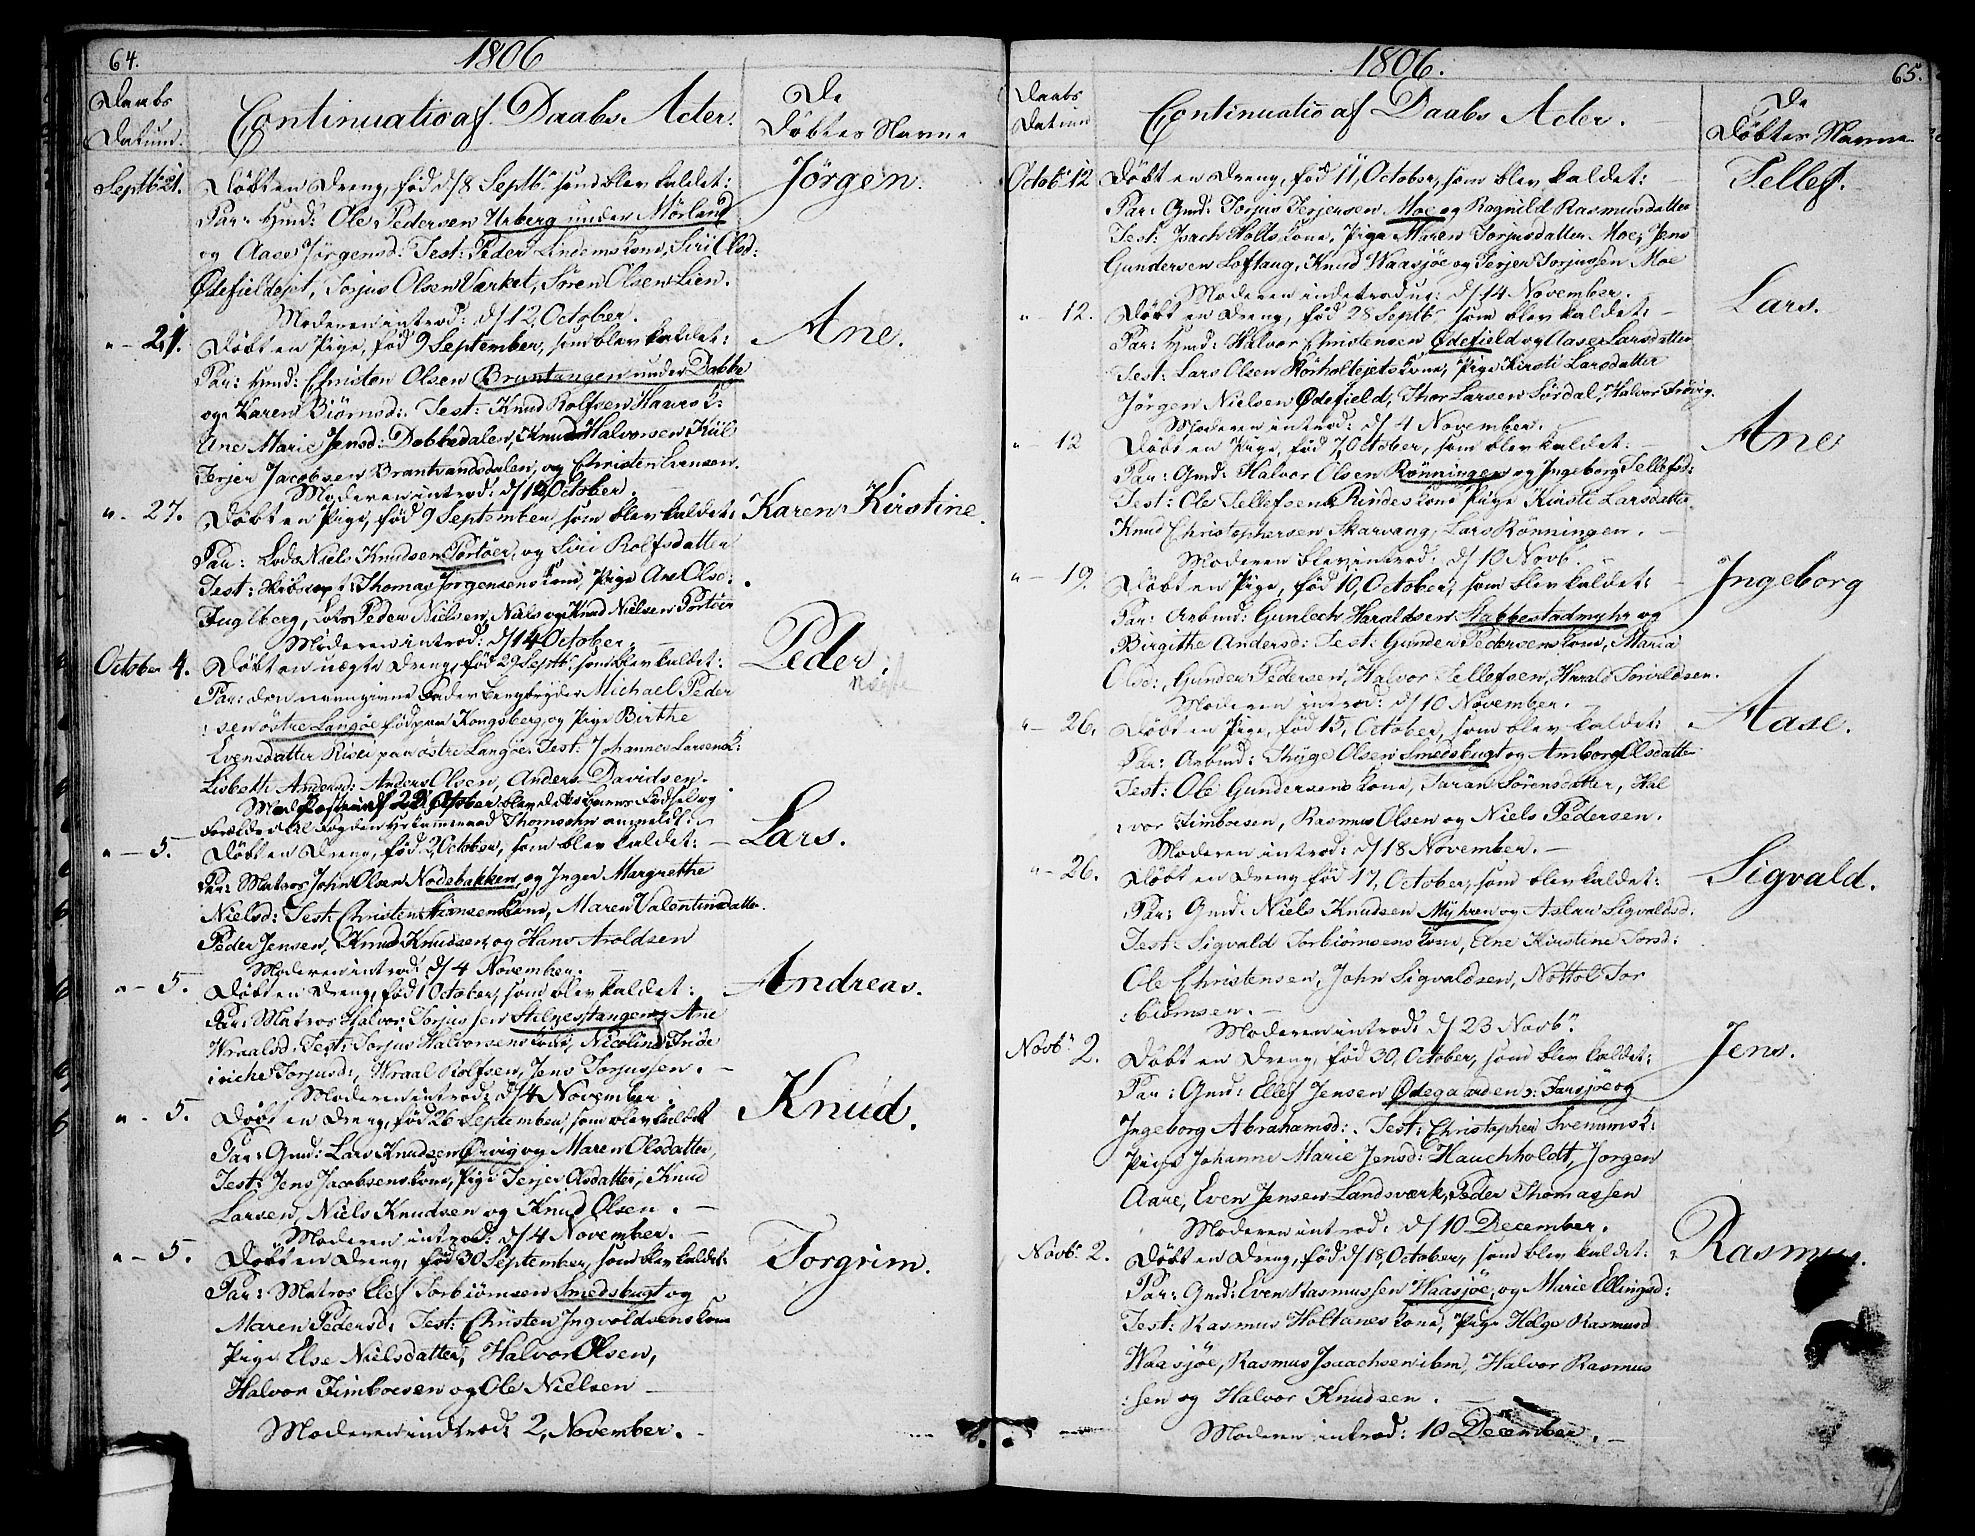 64.
1806
Daabs Datum.
Continuatio af Daabs Acter.
De Döbtes Navne
Septbr 21.
Döbt en Dreng, fød d/8 Septbr som blev kaldet:
Jörgen.
Par: Gmd: Ole Pedersen Urberg under Mörland
og Aase Jörgensd: Test: Peder Lindems kone, Siri Olsd:
Ødefieldejet, Torjus Olsen Værket, Sören Olsen Lien.
Moderen introd: d/12, October.
" - 21.
Döbt en Pige, fød 9 September, som blev kaldet:
Ane.
Par: Gmd: Christen Olsen Bruntangen under Dobbe
og Karen Biörnsd:. Test: Knud Rolfsen Haavs K:
Ane Marie Jensd: Dobbedalen, Knud Halvorsen Kiil
Terjer Jacobsen Brantvandsdalen, og Christen Evensen.
Moderen introd: d/12 October.
" - 27.
Döbt en Pige, fød 9 September som blev kaldet:
Karen Kirstine.
Par: Lods Niels Knudsen Portöer, og Siri Rolfsdatter
Test: Skibscapt: Thomas Jörgensens kone, Pige Ane Olsd:
Fuglberg, Lods Peder Nielsen, Niels og Knud Nielsen Portöer
Moderen introd: d/14 October.
October 4.
Döbt en uægte Dreng, fød 29 Septbr. som blev kaldet:
Peder.
Par: den navngivne Fader Bergbryder Michael Peder
:sen östre Langöe född paa Kongsberg, og Pige Birthe
Evensdatter Riisei paa östre Langöe. Test: Johannes Larsens K:
Lisbeth Amundsd: Anders Olsen, Anders Davidsen.
blev dets Barns Födsel og
Forældre til Fogden Hr Kammeraad Thomsohn anmeldt.
" - 5.
Döbt en Dreng, fød 2, October, som blev kaldet:
Lars.
Par: Matros John Olsen Nodebakken, og Inger Margrethe
Nielsd: Test: Christen Simsens kone, Maren Valentinsdatter.
Peder Jensen, Knud Knudsen, og Hans Aroldsen
Moderen introd: d/4 November.
" - 5.
Döbt en Dreng, fød 1 October, som blev kaldet:
Andreas.
Par: Matros Halvor Torjussen Stilnestangen, Ane
Wraalsd: Test: Torjus Halvorsens kone, Nicoline Fride
:riche Torjusd:, Wraal Rolfsen, Jens Torjussen.
Moderen introd: d/4 November.
" - 5.
Döbt en Dreng, fød 26 September, som blev kaldet
Knud.
Par: Gmd: Lars Knudsen Örvig og Maren Olsdatter,
Test: Jens Jacobsens kone, Pige Terjer Olsdatter, Knud
Larsen, Niels Knudsen og Knud Olsen.
Moderen introd: d/4 November.
" - 5.
Döbt en Dreng, fød 30 September, som blev kaldet:
Torgrim.
Par: Matros Elef Torbiörnsen Smedsbugt og
Maren Pedersd: Test: Christen Ingvoldsens kone
Pige Else Nielsdatter, Halvor Olsen,
Halvor Simborsen og Ole Nielsen
Moderen introd: 2, November.
1806.
65.
Daabs Datum
Continuatio af Daabs Acter.
De Döbtes Navne
Octobr 12
Döbt en Dreng, fød 11, October, som blev kaldet:
Tellef.
Par: Gmd: Torjus Terjersen Moe og Ragnild Rasmusdatter
Test: Isach Holts kone, Pige Maren Torjusdatter Moe, Jens
Gundersen Loftaug, Knud Waasjöe og Terjer Torjussen Moe
Moderen indtrod: d/14 November.
" 12.
Döbt en Dreng, fød 28 Septbr som blev kaldet:
Lars.
Par: Gmd: Halvor Christensen Ødefield og Aase Larsdatter
Test: Lars Olsen Hörholtejets kone, Pige Kirsti Larsdatter
Jörgen Nielsen Ødefield, Thor Larsen Sördal, Halvor Frövig.
Moderen introd: d/4 November.
" 12
Döbt en Pige, fød 7, October, som blev kaldet:
Ane
Par: Gmd: Halvor Olsen Rönningen og Ingeborg Tellefsd:
Test: Ole Tellefsen Rindes kone Pige Kirsti Larsdatter
Knud Christophersen Skarvang, Lars Rönningen.
Moderen blev introd: d/10 Novbr.
" - 19.
Döbt en Pige, fød 10, October, som blev kaldet:
Ingeborg
Par: Arbmd: Gunlech Haraldsen Stabbestadmyhr og
Birgithe Andersd: Test: Gunder Pedersens kone, Maria
Olsd:, Gunder Pedersen, Halvor Tellefsen, Harald Torvildsen.
Moderen introd: d/10 November.
" - 26.
Döbt en Pige, fød 15, October, som blev kaldet:
Aase.
Par: Arbmd: Thyge Olsen Smedsbugt og Amborg Olsdatter
Test: Ole Gundersens kone, Taran Sörensdatter, Hal
:vor Simborsen, Rasmus Olsen og Niels Pedersen.
Moderen introd: d/18 November.
" - 26.
Döbt en Dreng fød 17, October, som blev kaldet:
Sigvald.
Par: Gmd: Niels Knudsen Myhren og Aslau Sigvaldsd:
Test: Sigvald Torbiörnsens kone, Ane Kirstine Torsd:
Ole Christensen, John Sigvaldsen, Nottol Tor
:biörnsen.
Moderen introd: d/23 Novbr.
Novbr 2.
Döbt en Dreng, fød 30, October, som blev kaldet:
Jens.
Par: Gmd: Ellef Jensen Ødegaarden v: Farsjöe og
Ingeborg Abrahamsd:. Test: Christopher Svenums K:
Pige Johanne Marie Jensd: Hauchholdt, Jörgen
Aare, Even Jensen Landsværk, Peder Thomassen
Moderen introd: d/10 December.
Novbr. 2.
Döbt en Dreng, fød d/18, October, som blev kaldet:
Rasmus.
Par: Gmd: Even Rasmussen Waasjöe, og Marie Ellingsd:
Test: Rasmus Holtanes kone, Pige Helge Rasmusd
Waasjöe, Rasmus Isaachsen ibm, Halvor Rasmus
:sen og Halvor Knudsen.
Moderen introd: 10 December.